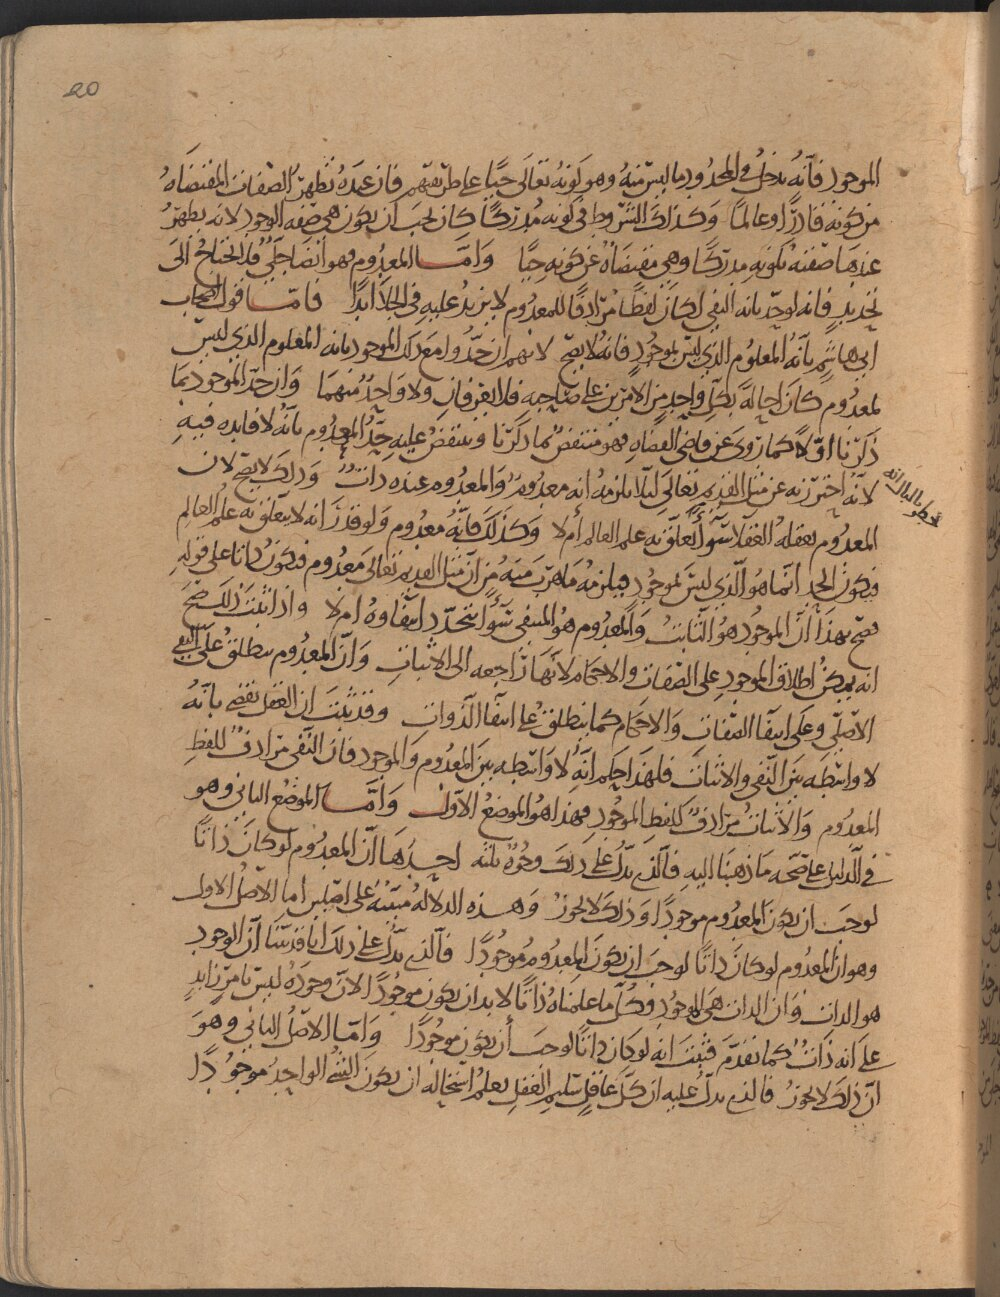 20
الموجود فانه يدخل في المحدود ما ليس منه وهو كونه تعالى حيا على طريقتهم فان عنده تظهر الصفات المقتضاه
من كونه قادرا وعالما وكذلك الشروط في كونه مدركا كان يجب ان يكون هي صفه الوجود لانه يظهر
عندها صفته بكونه مدركا وهي مقتضاه عن كونه حيا واما المعدوم فهو ايضا جلي فلا يحتاج الى
تحديد فانه لو حد بانه النفي لكان لفظا مرادفا للمعدوم لا يزيد عليه في الجلا ابدا فاما قول اصحاب
ابي هاشم بانه المعلوم الذي ليس بموجود فانه لا يصح لانهم ان حدوا مع ذلك الموجود بانه المعلوم الذي ليس
بمعدوم كان احاله بكل واحد من الامرين على صاحبه فلا يعرفان ولا واحد منهما وان حد الموجود بما
ذكرنا اولا كما روي عن قاضي القضاه فهو منتقض بما ذكرنا وينتقض عليه حد المعدوم بانه لا فايده فيه
لانه احترز به عن مثل القديم تعالى ليلا يلزمه انه معدوم والمعدوم عنده ذات وذلك لا يصح لان
المعدوم يعقله العقلا سوا تعلق به علم العالم ام لا وكذلك فانه معدوم ولو قدر انه لا يتعلق به علم العالم
فيكون الحد انما هو الذي ليس بموجود فيلزمه ما هرب منه من ان مثل القديم تعالى معدوم فيكون ذاتا على قوله
فصح بهذا ان الموجود هو الثابت والمعدوم هو المنفي سوا تجدد انتفاوه ام لا واذا ثبت ذلك صح
انه يمكن اطلاق الموجود على الصفات والاحكام لانها راجعه الى الاثبات وان المعدوم ينطلق على النفي
الاصلي وعلى انتفا الصفات والاحكام كما ينطلق على انتفا الذوات وقد ثبت ان العقل يقضي بانه
لا واسطه بين النفي والاثبات فلهذا حكم انه لا واسطه بين المعدوم والموجود فان النفي مرادف للفظ
المعدوم والاثبات مرادف للفظ الموجود فهذا هو الموضع الاول واما الموضع الثاني وهو
في الدليل على صحه ما ذهبنا اليه فالذي يدل على ذلك وجوه ثلثه احدها ان المعدوم لو كان ذاتا
لوجب ان يكون المعدوم موجودا وذلك لا يجوز وهذه الدلاله مبنيه على اصلين اما الاصل الاول
وهو ان المعدوم لو كان ذاتا لوجب ان يكون المعدوم موجودا فالذي يدل على ذلك انا قد بينا ان الوجود
هو الذات وان الذات هي الموجود وكل ما علمناه ذاتا لا بد ان يكون موجودا لان وجوده ليس بامر زايد
على انه ذات كما تقدم فثبت انه لو كان ذاتا لوجب ان يكون موجودا واما الاصل الثاني وهو
ان ذلك لا يجوز فالذي يدل عليه ان كل عاقل سليم العقل يعلم استحاله ان يكون الشي الواحد موجودا